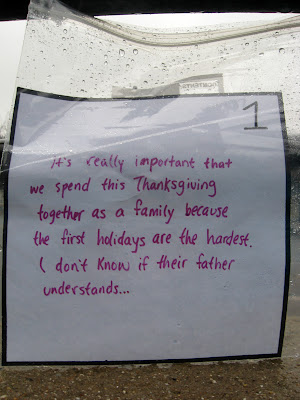 1
It's really important that
we spend this Thanksgiving
together as a family because
the first holidays are the hardest.
I don't know if their father
understands...